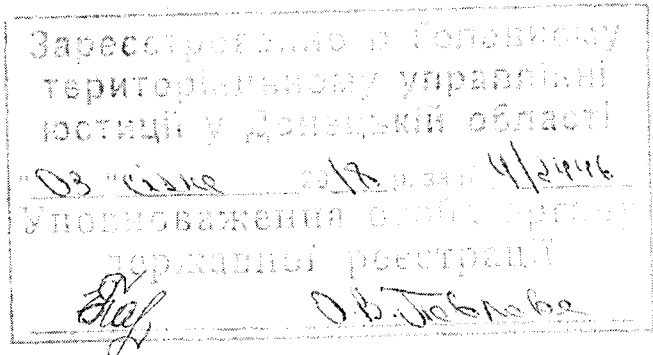 Зареєстровано в Головному
територіальному управлінні
юстиції у Донецькій області
"03" січня 2018 р. за №
Уповноважена особа органу
державної реєстрації
О.В. Павлова